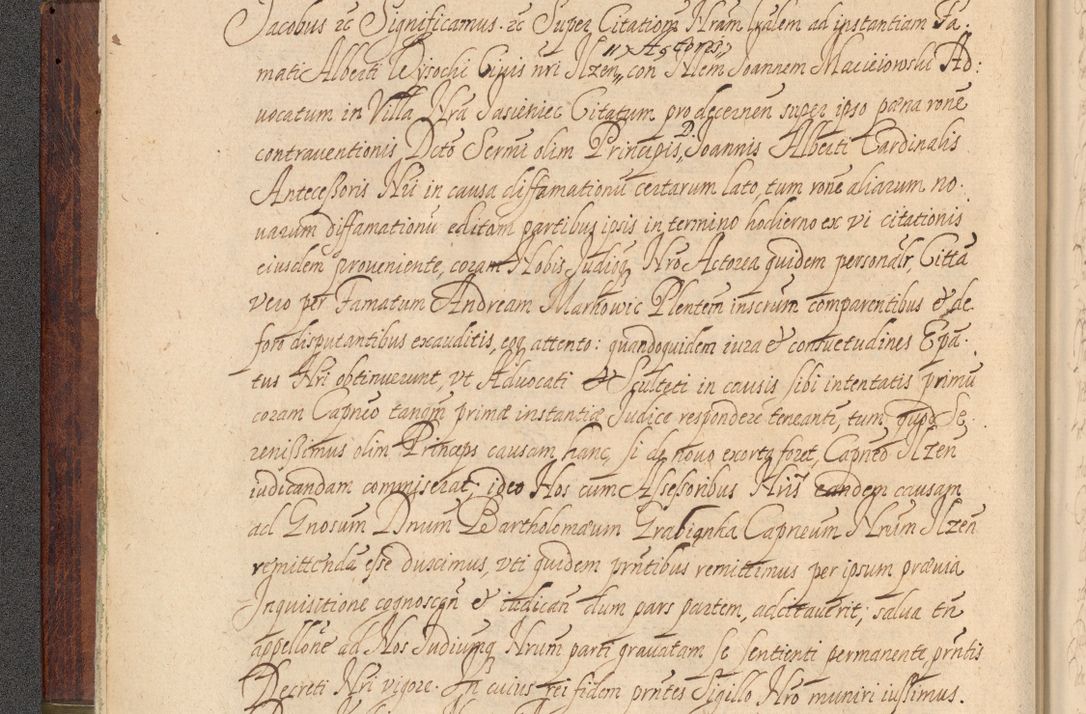 Jacobus etc Significamus. etc Super Citatiom Nram Iralem ad instantiam Fa:
mati Alberti Wysocki Civis nri Ilzen, Actores, con Nlem Joannem Macieiowski Ad:
vocatum in Villa Nra Jasieniec Citatum pro decernen super ipso pœna rone
contraventionis Dcto Sermi olim Principis D. Joannis Alberti Cardinalis
Antecessoris Nri in causa diffamationu certarum lato, tum rone aliarum no.
varum diffamationu editam partibus ipsis in termino hodierno ex vi citationis
eiusdem proveniente, coram Nobis Judiciq Nro Actorea quidem personalr, Citta
vero per Famatum Andream Markowic Plentem inscrum comparentibus & de
foro disputantibus exauditis, eoq attento: quandoquidem iura & consuetudines Epa.
tus Nri obtinuerunt, vt Advocati & Sculteti in causis sibi intentatis primu
coram Capneo tanqm primæ instantiæ Judice respondere teneantr, tum quod Se.
renissimus olim Princeps causam hanc, si de novo exorta foret, Capneo Ilzen
iudicandam commiserat; ideo Nos cum Assessoribus Nris eandem causam
ad Gnosum Dnum Bartholomæum Grabianka Capneum Nrum Ilzen
remittenda esse duximus, vti quidem prntibus remittimus per ipsum prævia
Inquisitione cognoscen & iudican dum pars partem, adcitaverit, salva tn
appellone ad Nos Judiumq Nrum parti gravatam se sentienti permanente, prntis
Decreti Nri vigore. In cuius rei fidem prntes Sigillo Nro muniri iussimus.